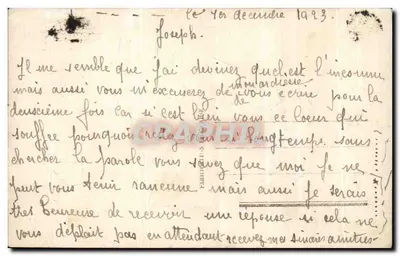 le 1er decembre 1923.
Joseph.
Il me semble que j'ai deviner quel est l'inconnu
mais aussi vous m'excuserez de mon ardiesse de vous ecrire pour la
deuxième fois car si c'est bien vous ce coeur qui
souffre pourquoi rester longtemps sans
chercher la parole vous savez que moi je ne
peut vous tenir rancune mais aussi je serais
tres heureuse de recevoir une reponse si cela ne
vous déplait pas en attendant recevez mes amitiés